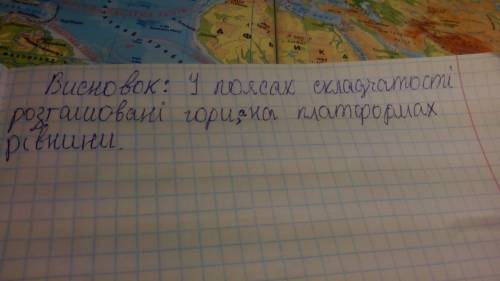 Висновок: У поясах складчатості
розташовані гори, а на платформах
рівнини.